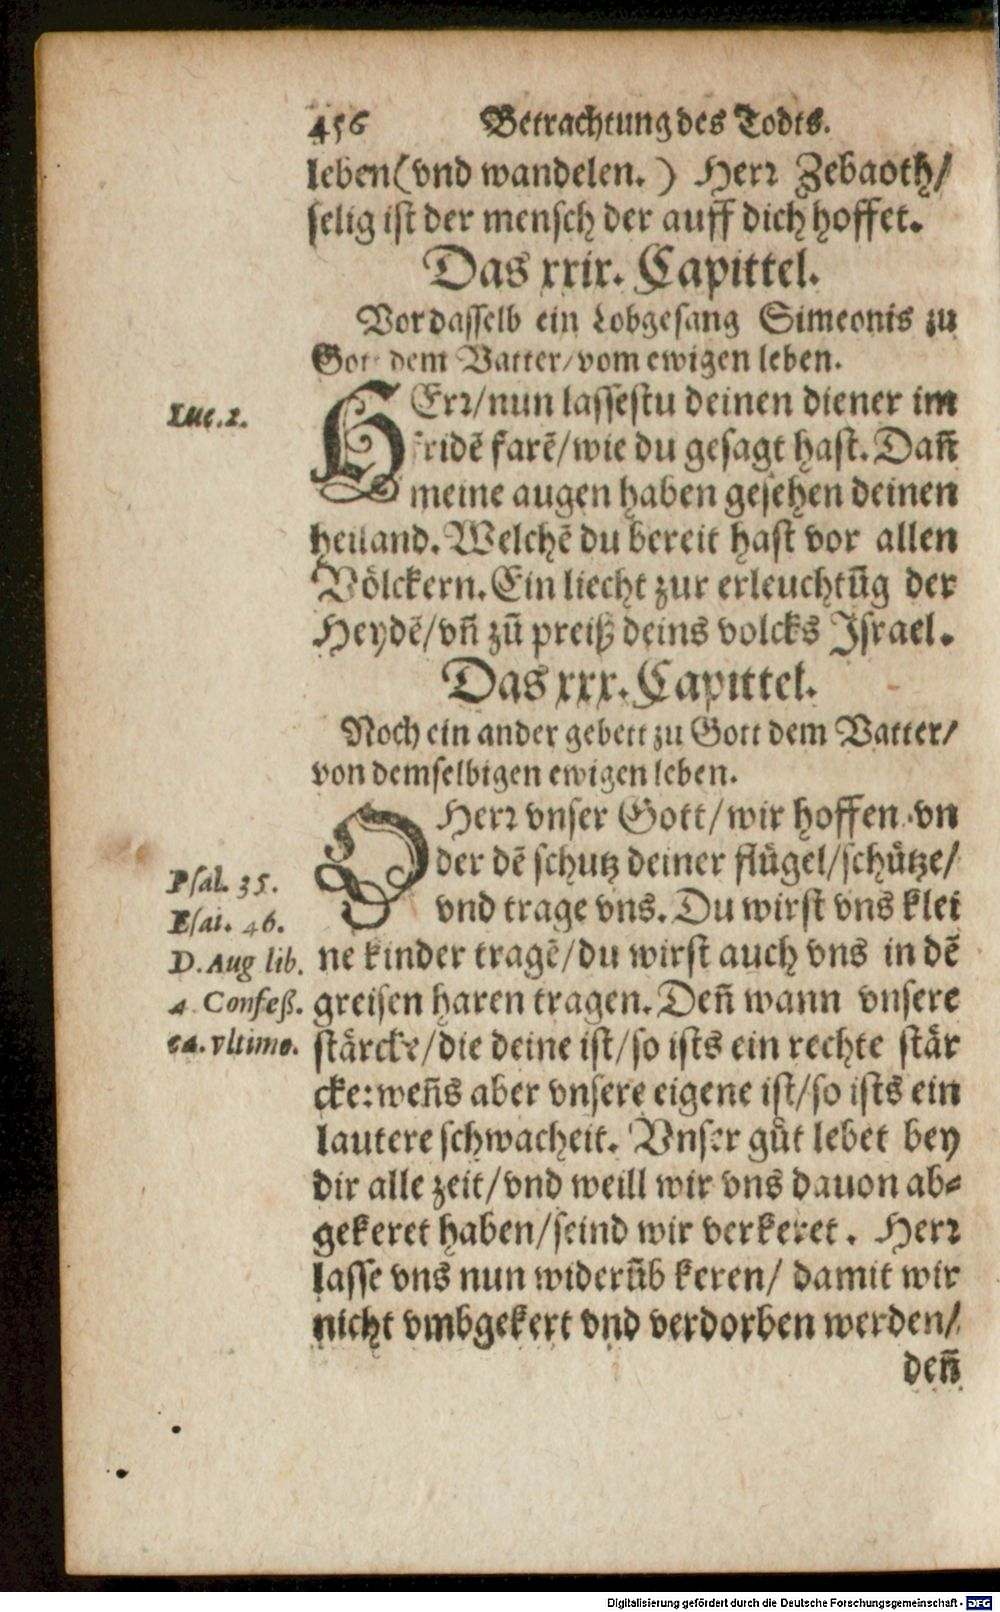 456 Betrachtung des Todts.
leben (vnd wandelen.) Herr Zebaoth/
selig ist der mensch der auff dich hoffet.
Das xxix. Capittel.
Vor dasselb ein Lobgesang Simeonis zu
Got dem Vatter/vom ewigen leben.
Luc.2.
HErr/nun lassestu deinen diener im
fridē farē/wie du gesagt hast. Dañ
meine augen haben gesehen deinen
heiland. Welchē du bereit hast vor allen
Völckern. Ein liecht zur erleuchtũg der
Heydē/vñ zũ preiß deins volcks Israel.
Das xxx. Capittel.
Noch ein ander gebett zu Gott dem Vatter/
von demselbigen ewigen leben.
O Herr vnser Gott/wir hoffen vn
der dē schutz deiner flügel/schütze/
vnd trage vns. Du wirst vns klei
ne kinder tragē/du wirst auch vns in dē
greisen haren tragen. Deñ wann vnsere
stärcke/die deine ist/so ists ein rechte stär
cke: weñs aber vnsere eigene ist/so ists ein
lautere schwacheit. Vnser gůt lebet bey
dir alle zeit/vnd weill wir vns dauon ab-
gekeret haben/seind wir verkeret. Herr
lasse vns nun widerũb keren/ damit wir
nicht vmbgekert vnd verdorben werden/
deñ
Psal. 35.
Esai. 46.
D. Aug lib.
4 Confeß.
ca. vltimo.
Digitalisierung gefördert durch die Deutsche Forschungsgemeinschaft - DFG